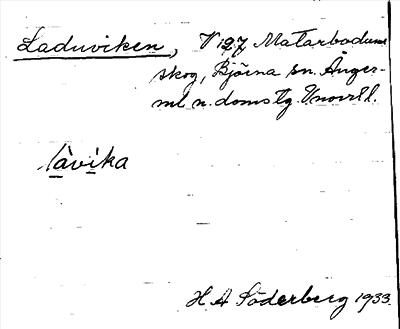 Laduviken, V 127 Matarbodum
skog, Björna sn. Ånger-
ml n. doms tg. Vnorrl l.
làvika
H A Söderberg 1933.